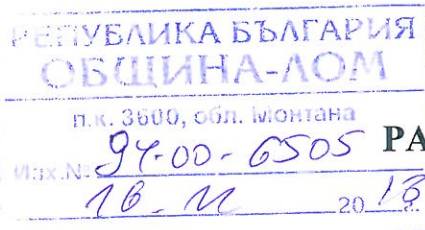 РЕПУБЛИКА БЪЛГАРИЯ
ОБЩИНА-ЛОМ
п.к. 3600, обл. Монтана
Изх.№ 94-00-6505 РА
16. 11 2018